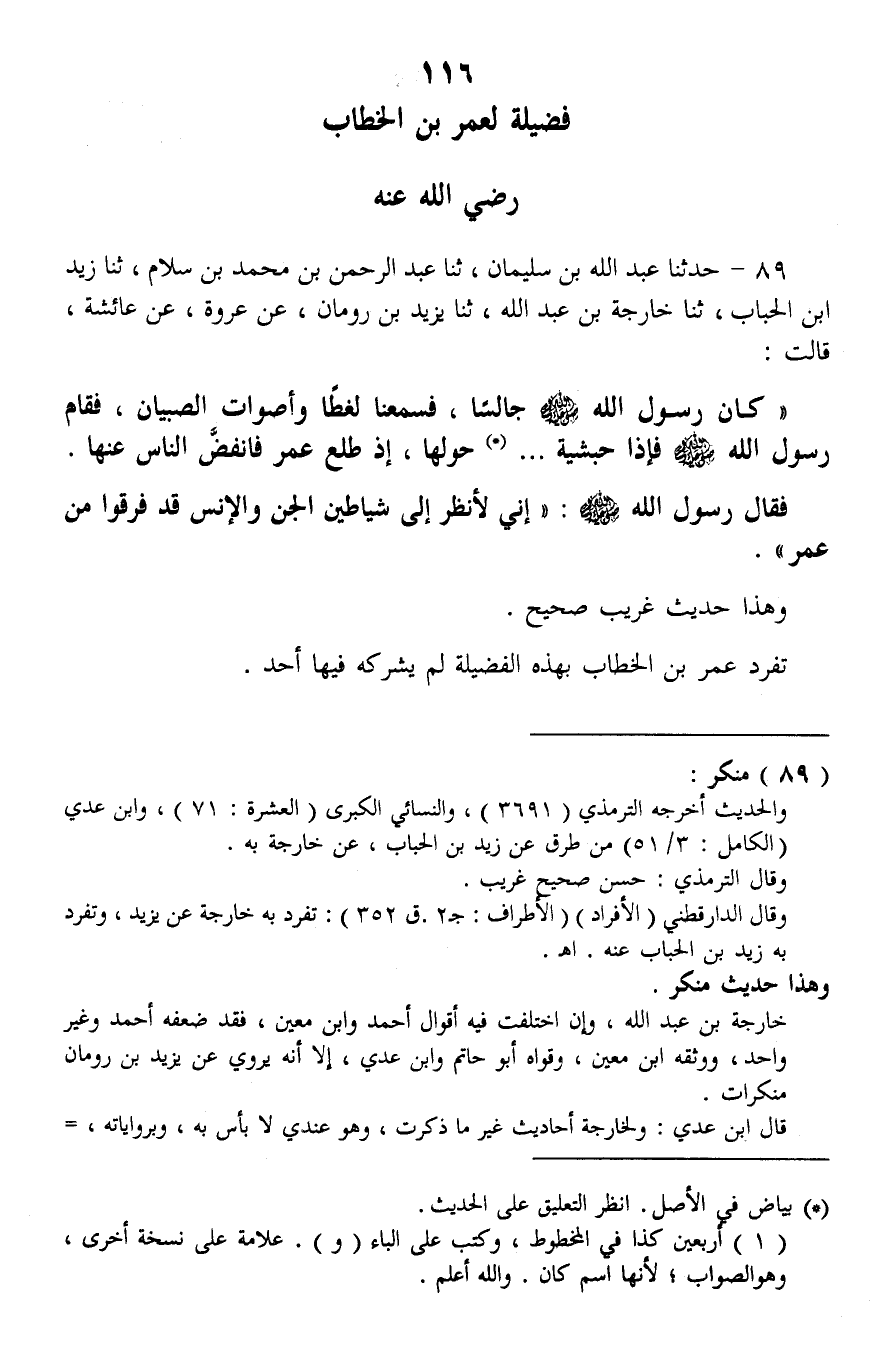 ١١٦
فضيلة لعمر بن الخطاب
رضي الله عنه
٨٩ - حدثنا عبد الله بن سليمان ، ثنا عبد الرحمن بن محمد بن سلام ، ثنا زيد
ابن الحباب ، ثنا خارجة بن عبد الله ، ثنا يزيد بن رومان ، عن عروة ، عن عائشة ،
قالت :
« كـان رسـول الله ﷺ جالسًا ، فسمعنا لغطًا وأصوات الصبيان ، فقام
رسول الله ﷺ فإذا حبشية ... (*) حولها ، إذ طلع عمر فانفضَّ الناس عنها .
فقال رسول الله ﷺ : « إني لأنظر إلى شياطين الجن والإنس قد فرقوا من
عمر» .
وهذا حديث غريب صحيح .
تفرد عمر بن الخطاب بهذه الفضيلة لم يشركه فيها أحد .
( ٨٩ ) منكر :
والحديث أخرجه الترمذي ( ٣٦٩١ ) ، والنسائي الكبرى ( العشرة : ٧١ ) ، وابن عدي
(الكامل : ٣/ ٥١) من طرق عن زيد بن الحباب ، عن خارجة به .
وقال الترمذي : حسن صحيح غريب .
وقال الدارقطني ( الأفراد ) ( الأطراف : جـ٢ .ق ٣٥٢ ) : تفرد به خارجة عن يزيد ، وتفرد
به زيد بن الحباب عنه . اهـ .
وهذا حديث منكر .
خارجة بن عبد الله ، وإن اختلفت فيه أقوال أحمد وابن معين ، فقد ضعفه أحمد وغير
واحد ، ووثقه ابن معين ، وقواه أبو حاتم وابن عدي ، إلا أنه يروي عن يزيد بن رومان
منكرات .
قال ابن عدي : ولخارجة أحاديث غير ما ذكرت ، وهو عندي لا بأس به ، وبرواياته ، =
(*) بياض في الأصل . انظر التعليق على الحديث .
( ١ ) أربعين كذا في المخطوط ، وكتب على الباء ( و ) . علامة على نسخة أخرى ،
وهوالصواب ؛ لأنها اسم كان . والله أعلم .